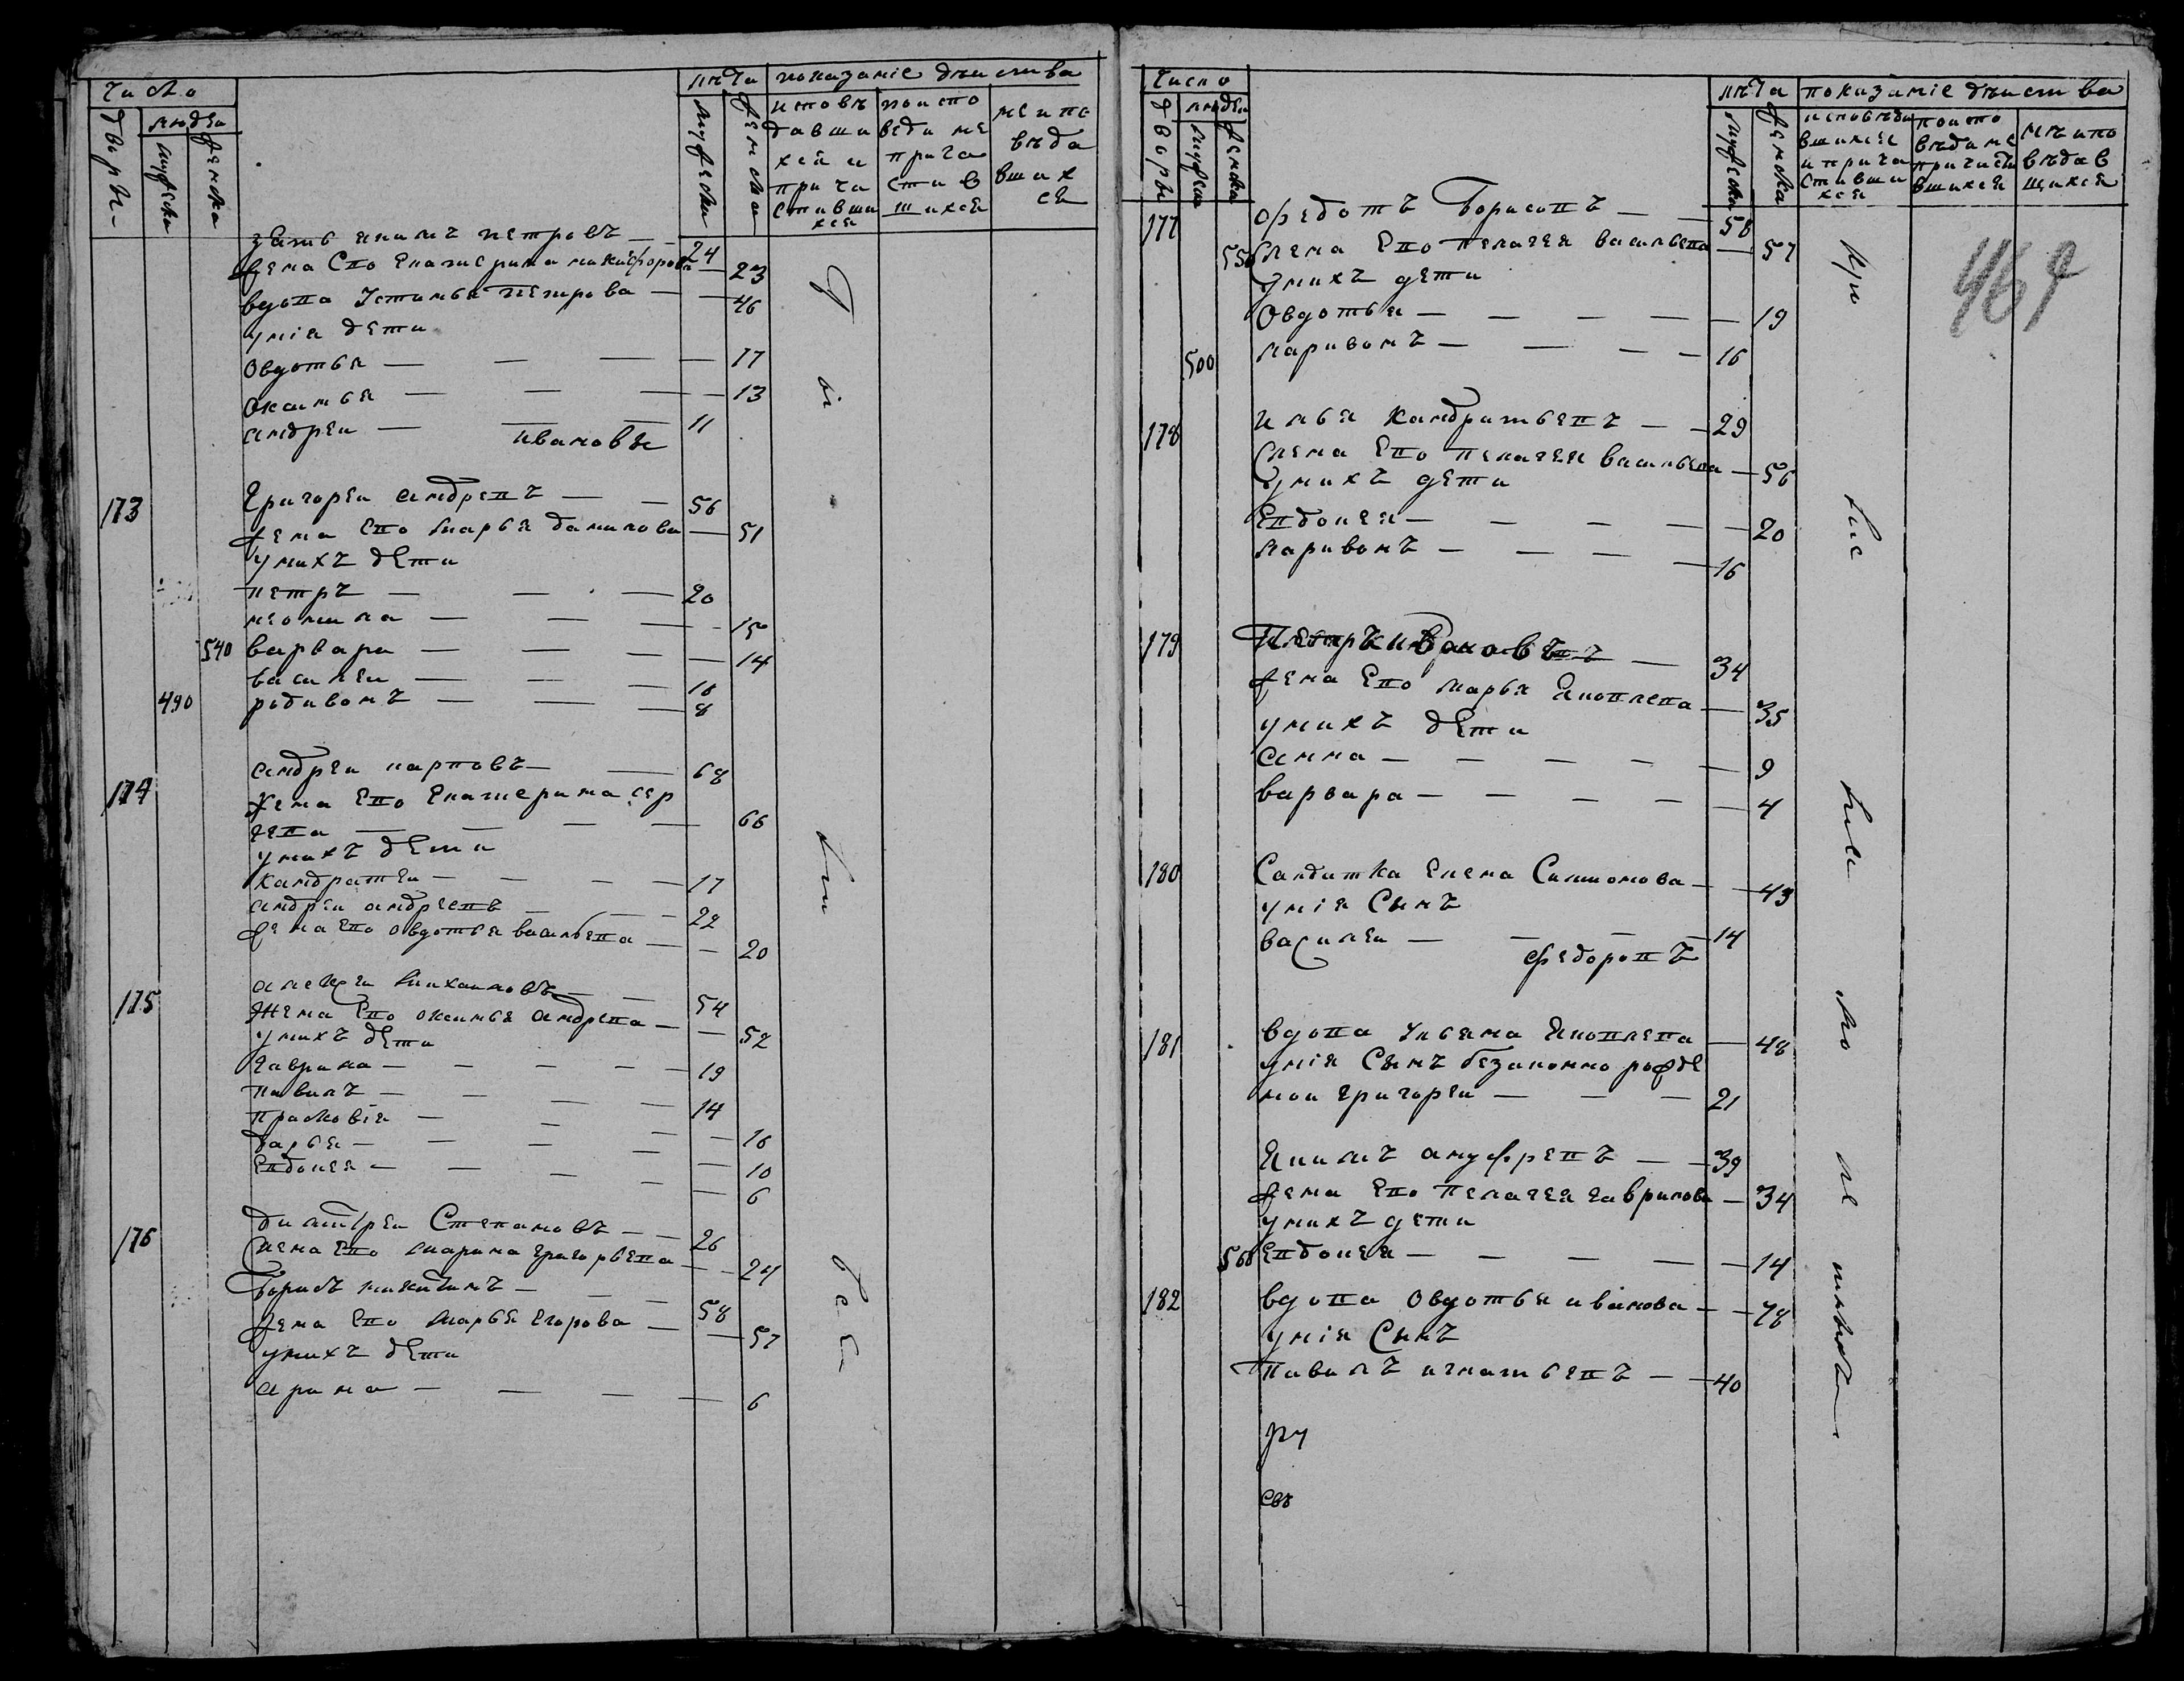 число
дворы
людеи
мужеска
женска
лѣта
мужеска
женска
показанiе дѣиства
исповѣдавшихся и причастившихся
по исповеди не причастившихся
не исповѣдавшихся
зять якимъ петровъ — — 24
жена Его Екатерина никифорова — 23
вдова Устинья петрова — — 46
унiя дети
Овдотья — — — — 17
Оксинья — — — — 13
андреи — — — 11
ивановы
173 Григореи андревъ — — 56
жена Его марья данилова — 51
унихъ дети
петръ — — — 20
неонила — — — — 15
540 варвара — — — — 14
василеи — — — 10
490 родивонъ — — — 8
174 андреи карповъ — — 68
жена Его Екатерина сер
гева — — — — 66
унихъ дети
кандратеи — — — — 17
андреи андреевъ — — — 22
жена Его овдотья васильева — — 20
175 алексеи михаиловъ — — 54
жена Его оксинья андрева — — 52
унихъ дети
гаврила — — — — — 19
павилъ — — — — 14
прасковiя — — — — 16
дарья — — — — — 10
Евдокея — — — — — 6
176 дмитреи Степановъ — — 26
жена Его марина григорьева — — 24
борисъ никитинъ — — — 58
жена Его марья Егорова — — 57
унихъ дети
арина — — — — 6
число
дворы
людеи
мужеска
женска
лѣта
мужеска
женска
показанiе дѣиства
исповѣдавшихся и причастившихся
по исповѣди не причастившихся
не исповѣдавшихся
464
177 Федотъ борисовъ — — 58
550 жена Его пелагея васильева — 57
унихъ дети
Овдотья — — — — — 19
500 ларивонъ — — — — 16
178 илья кандратьевъ — — 29
жена Его пелагея васильева — 56
унихъ дети
Евдокея — — — — — 20
ларивонъ — — — — 16
179 — 34
жена Его марья Яковлева — 35
унихъ дети
анна — — — — — — 9
варвара — — — — — 4
180 Салдатка Елена Симионова — — 43
унiя Сынъ
василеи — — — — 14
федоровъ
181 вдова Ульяна Яковлева — 48
унiя Сынъ безаконно рожде
нои григореи — — — 21
Якимъ ануфревъ — — 39
жена Его пелагея гаврилова — 34
унихъ дети
560 Евдокея — — — — — 14
182 вдова Овдотья иванова — — 78
унiя Сынъ
павилъ игнатьевъ — — 40